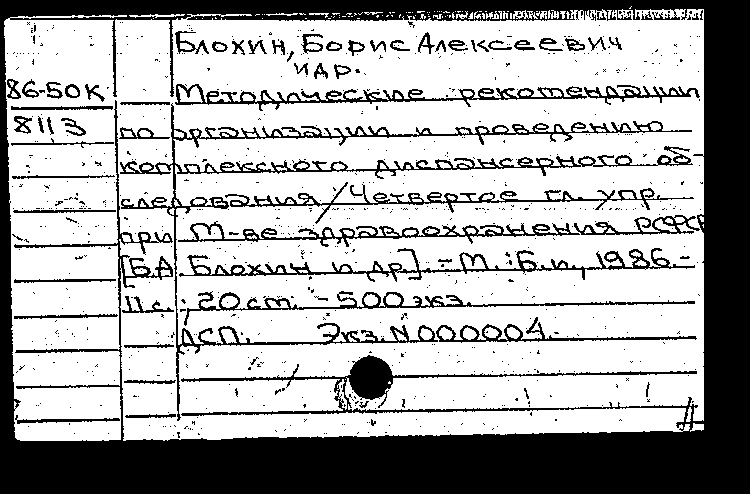 Блохин, Борис Алексеевич
и др.
86-50К Методические рекомендации
8113 по организации и проведению
комплексного диспансерного об-
следования / Четвертое гл. упр.
при М-ве здравоохранения РСФСР
[Б.А. Блохин и др]. - М. : Б.и., 1986. -
11 с. ; 20 см. - 500 экз.
ДСП. Экз. N 000004.